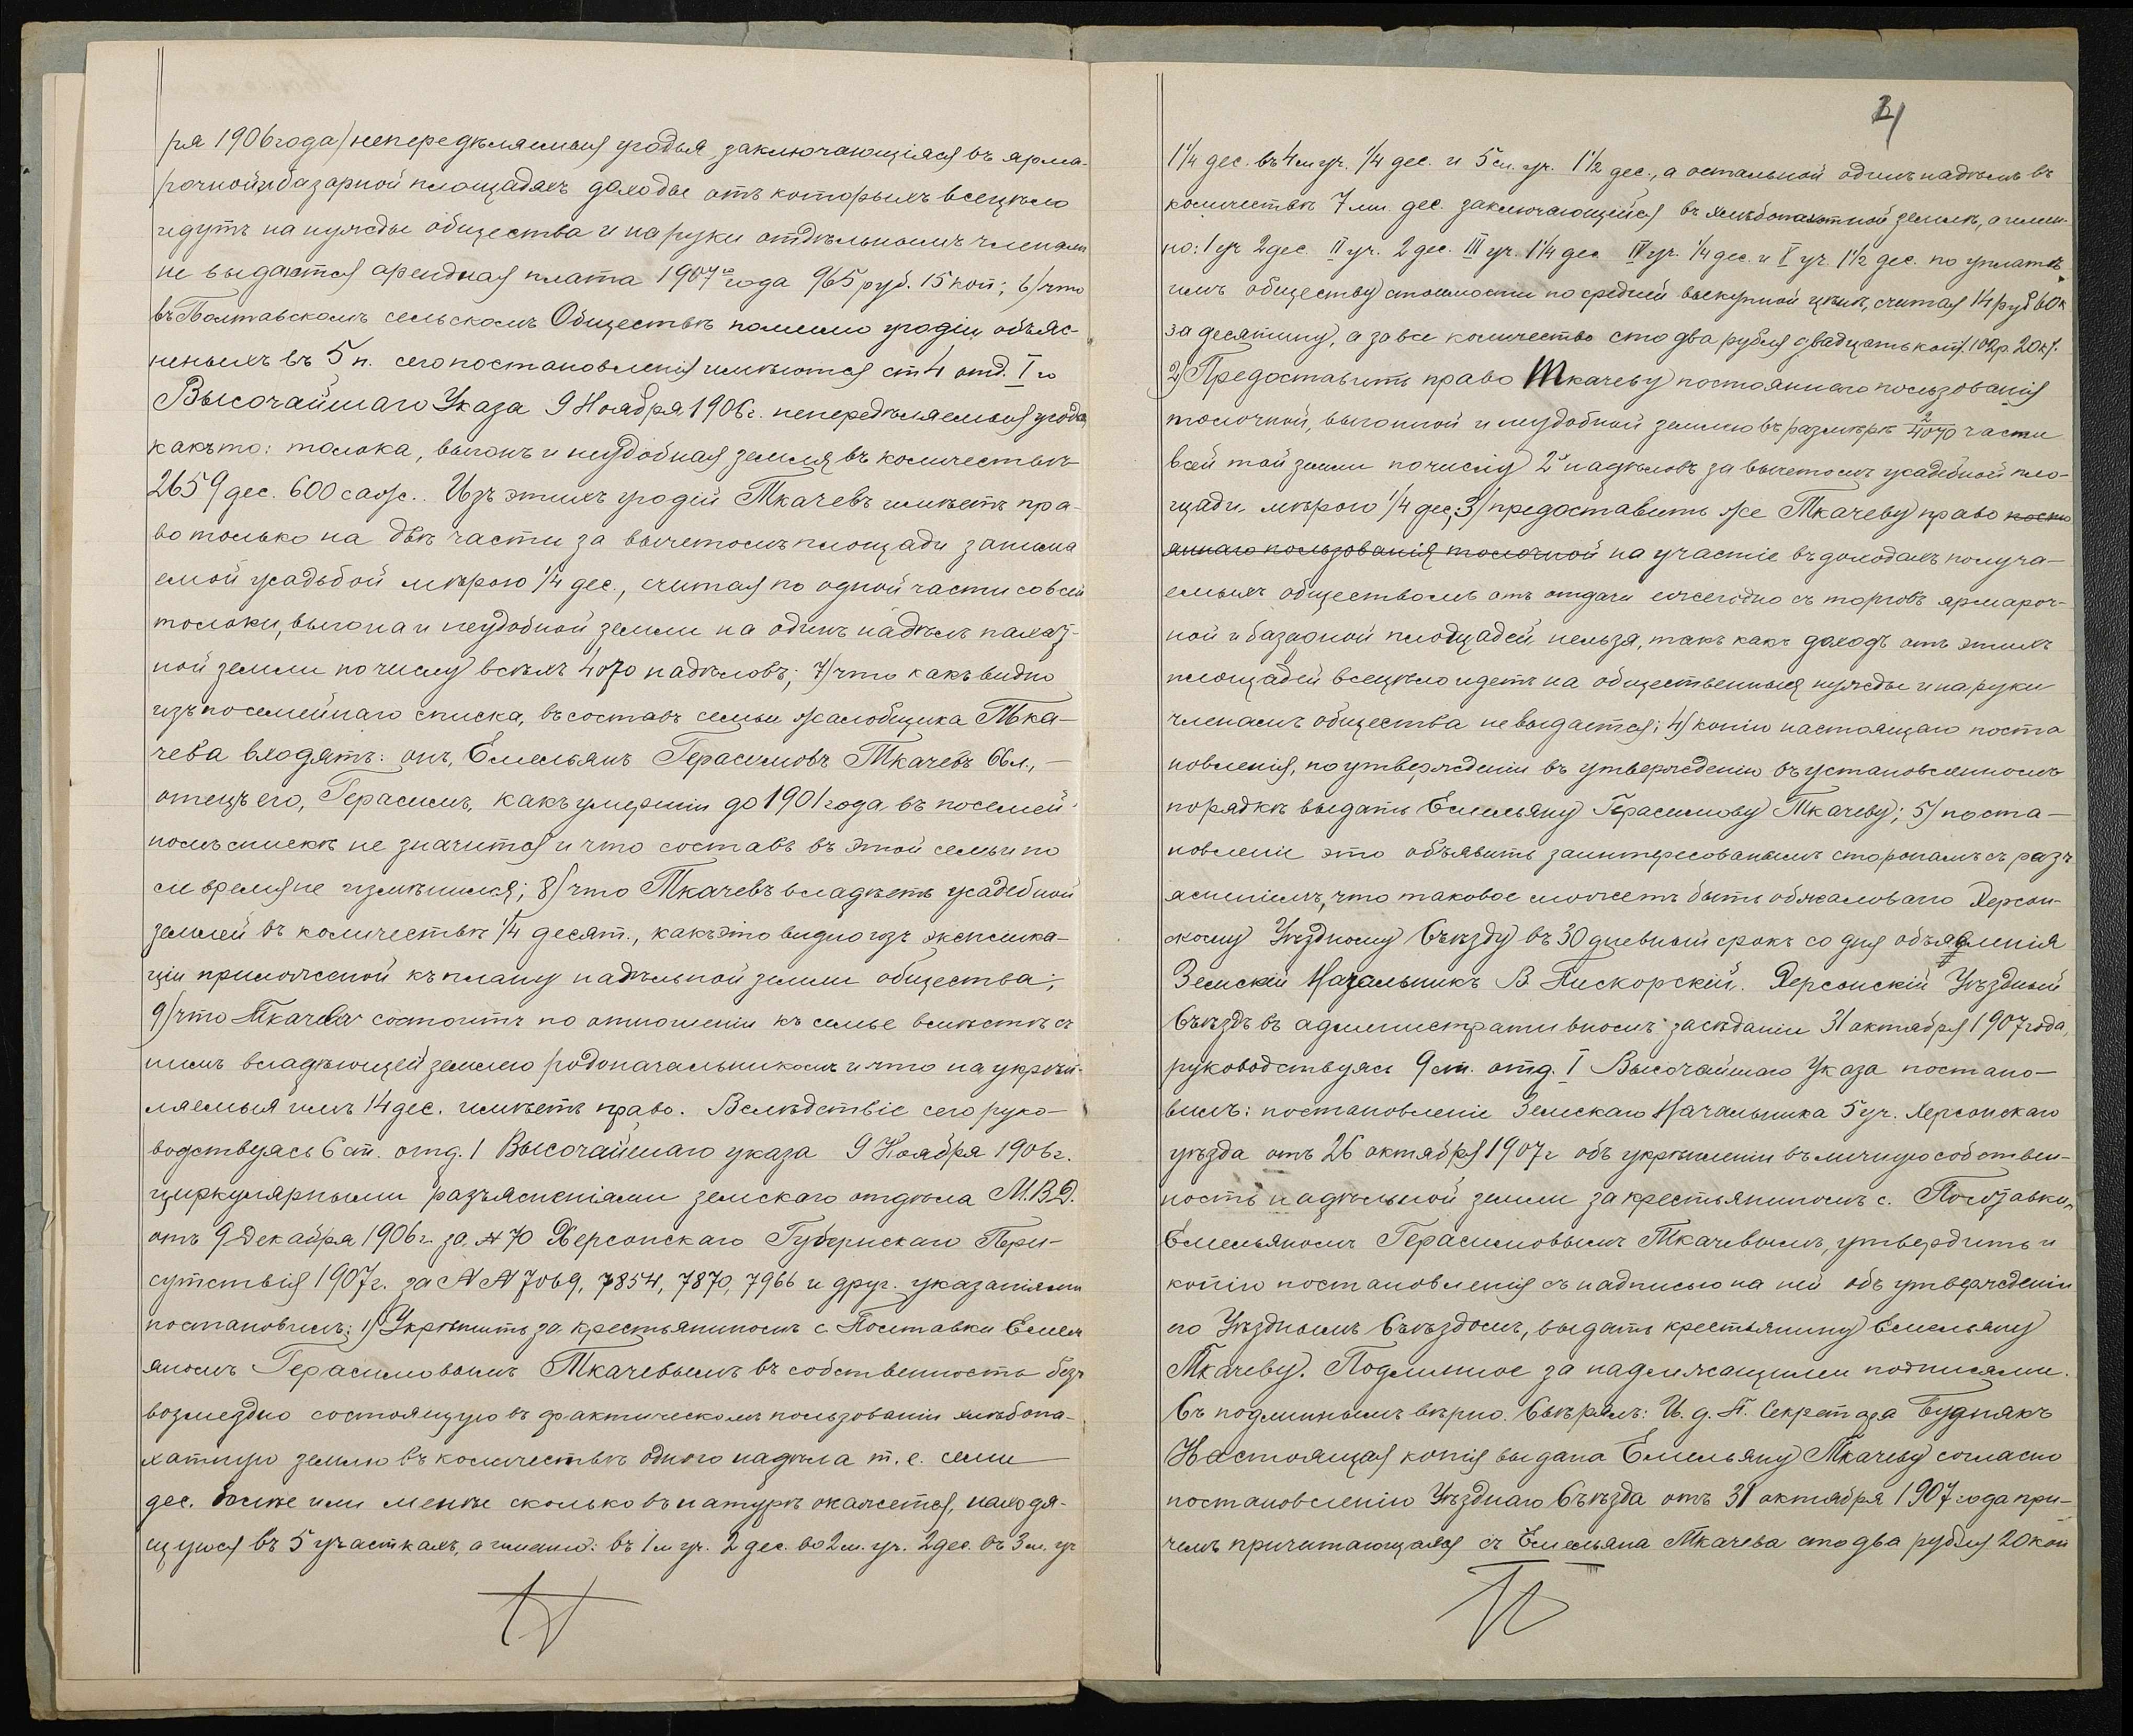 ря 1906 года) непередѣляемыя угодья, заключающіяся въ ярма-
рочной и базарной площадяхъ доходы отъ которыхъ всецѣло
идутъ на нужды общества и на руки отдѣльнымъ членамъ
не выдаются арендная плата 1907го года 965 руб. 15 коп; 6) что
въ Полтавскомъ сельскомъ Обществѣ помимо угодіи объяс-
неныхъ въ 5 п. сего постановленія имѣются ст 4 отд. I го
Высочайшаго Указа 9 Ноября 1906 г. непередѣляемыя угодья
какъ то: толока, выгонъ и неудобная земля въ количествѣ
2659 дес. 600 саж. Изъ этихъ угодій Ткачевъ имѣетъ пра-
во только на двѣ части за вычетомъ площади занима
емой усадьбой мѣрою 1/4 дес., считая по одной части со всей
толоки, выгона и неудобной земли на одинъ надѣлъ пахат-
ной земли по числу всѣхъ 4070 надѣловъ; 7) что какъ видно
изъ посемейнаго списка, въ составъ семьи жалобщика Тка-
чева входятъ: онъ, Емельянъ Герасимовъ Ткачевъ 66 л., —
отецъ его, Герасимъ, какъ умершій до 1901 года въ посемей-
номъ спискѣ не значится и что составъ въ этой семьи по
сіе время не измѣнился; 8) что Ткачевъ владѣетъ усадебной
землей въ количествѣ 1/4 десят., какъ это видно изъ экспликa-
ціи приложеной къ плану надѣльной земли общества;
9) что Ткачева состоитъ по отношеніи къ семье вмѣстѣ съ
нимъ владѣющей землею родоначальникомъ и что на укрѣп-
ляемыя имъ 14 дес. имѣетъ право. Вслѣдствіе сего руко-
водствуясь 6 ст. отд. I Высочайшаго указа 9 Ноября 1906 г.
циркулярными разъясненіями земскаго отдѣла М.В.Д.
отъ 9 Декабря 1906 г. за № 70 Херсонскаго Губернскаго При-
сутствія 1907 г. за №№ 7069, 7854, 7870, 7966 и друг. указаніями
постановилъ: 1) Укрѣпить за крестьяниномъ с. Полтавки Емель
яномъ Герасимовымъ Ткачевымъ въ собственность без
возмездно состоящую въ фактическомъ пользованіи хлѣбопа-
хатную землю въ количествѣ одного надѣла т. е. семи
дес. болѣе или менѣе сколько въ натурѣ окажется, находя-
щуюся въ 5 участкахъ, а именно: въ 1м уч. 2 дес. во 2 м. уч. 2 дес. въ 3 м. уч
1 1/4 дес. въ 4 м уч. 1/4 дес. и 5 м. уч. 1 1/2 дес., а остальной одинъ надѣлъ въ
количествѣ 7 ми. дес. заключающійся въ хлѣбопахотной землѣ, а имен-
но: I уч 2 дес. II уч. 2 дес. III уч. 1 1/4 дес IV уч. 1/4 дес. и V уч. 1 1/2 дес. по уплатѣ
имъ обществу стоимости по средней выкупной цѣнѣ, считая 14 руб 60 к
за десятину, а за все количество сто два рубля двадцать коп. 102 р. 20 к.
2) Предоставить право Ткачеву постояннаго пользованія
толочной, выгонной и неудобной землею въ размѣрѣ 2/4070 части
всей той земли по числу 2х надѣловъ за вычетомъ усадебной пло-
щади мѣрою 1/4 дес; 3) предоставить же Ткачеву право посто
яннаго пользованія толочной на участіе въ доходахъ получа-
емыхъ обществомъ отъ отдачи ежегодно съ торговъ ярмароч-
ной и базарной площадей нельзя, такъ какъ доходъ отъ этихъ
площадей всецѣло идетъ на общественныя нужды и на руки
членамъ общества не выдается; 4) копію настоящаго поста
новленія, по утвержденіи въ утвержденію въ установленномъ
порядкѣ выдать Емельяну Герасимову Ткачеву; 5) поста-
новленіе это объявить заинтересованымъ сторонамъ съ разъ
ясненіемъ, что таковое можетъ быть обжаловано Херсон-
скому Уѣздному Съѣзду въ 30 дневный срокъ со дня объявленія
Земскій Начальникъ В Пискорскій. Херсонскій Уѣздный
Съѣздъ въ административномъ засѣданіи 31 октября 1907 года,
руководствуясь 9 ст. отд. I Высочайшаго Указа постано-
вилъ: постановленіе Земскаго Начальника 5 уч. Херсонскаго
уѣзда отъ 26 октября 1907 г объ укрѣпленіи въ личную собствен-
ность надѣльной земли за крестьяниномъ с. Полтавки,
Емельяномъ Герасимовымъ Ткачевымъ, утвердить и
копію постановленія съ надписью на ней объ утвержденіи
его Уѣзднымъ Съѣздомъ, выдать крестьянину Емельяну
Ткачеву. Подлинное за надлежащими подписями.
Съ подлиннымъ вѣрно. Свѣрялъ: И. д. П. Секретаря Буднякъ
Настоящая копія выдана Емельяну Ткачеву согласно
постановленію Уѣзднаго Съѣзда отъ 31 октября 1907 года при-
чемъ причитающаяся съ Емельяна Ткачева сто два рубля 20 коп